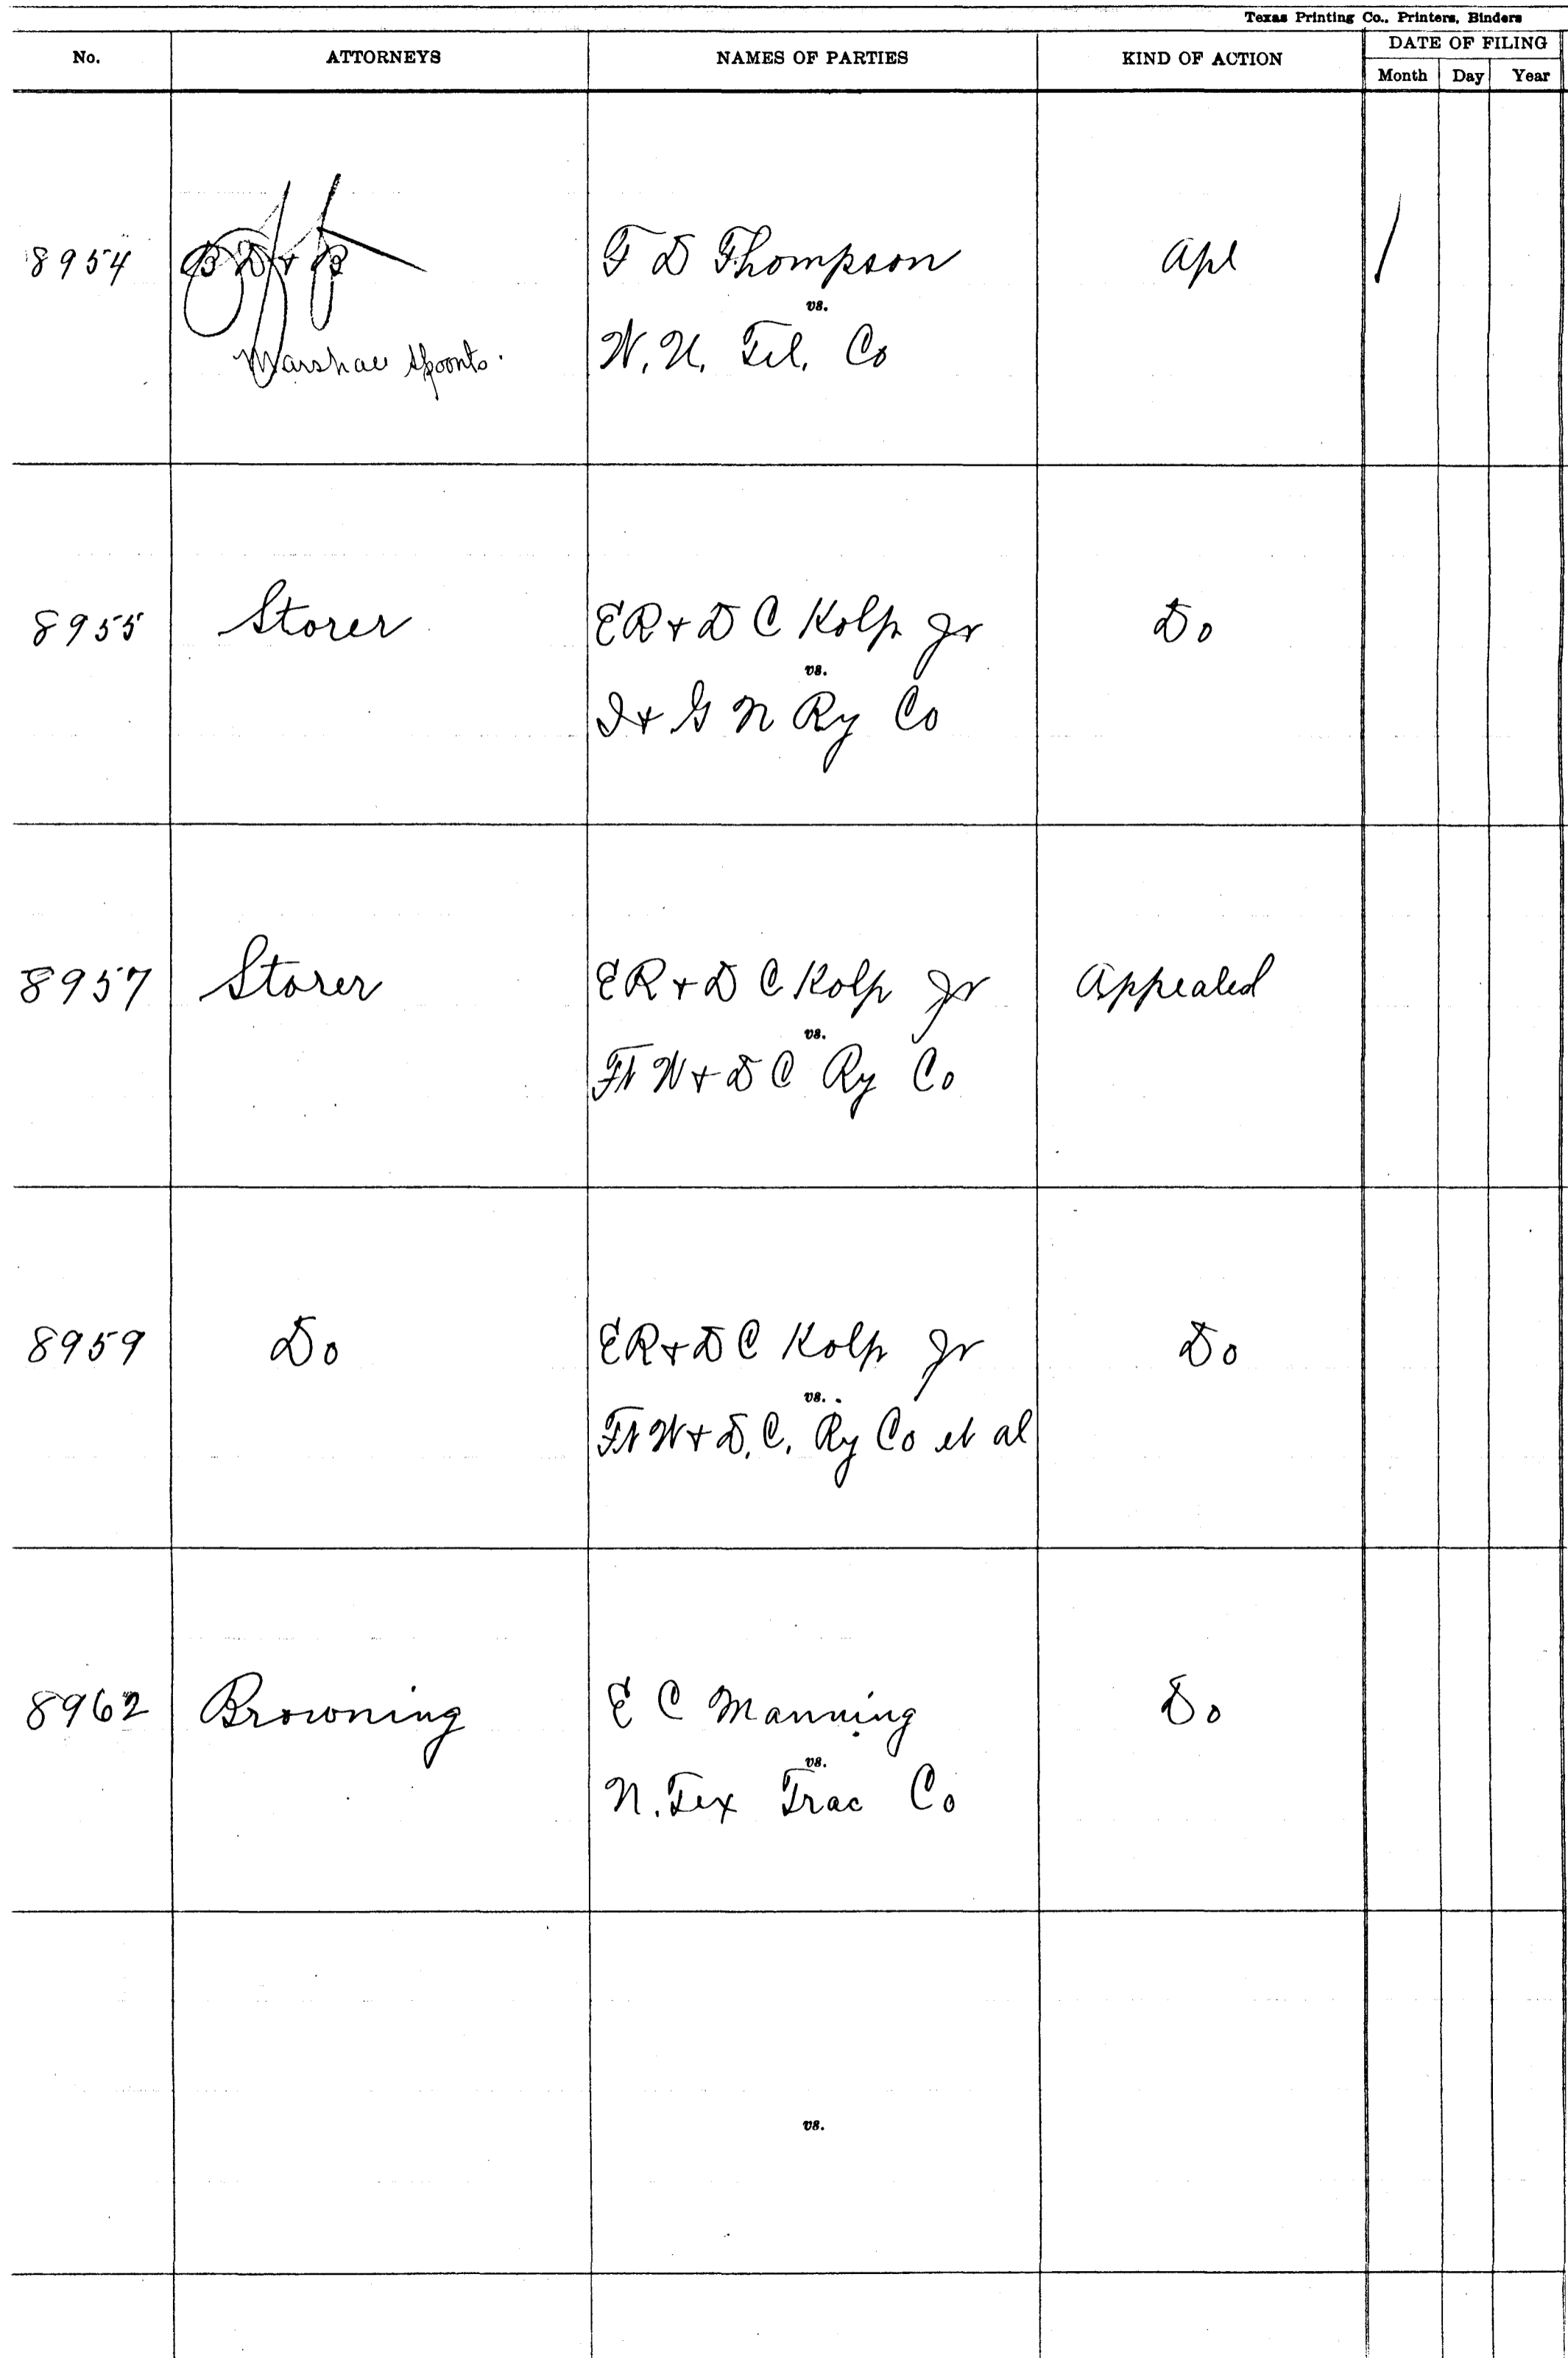 Texas Printing Co., Printers, Binders
No. ATTORNEYS NAMES OF PARTIES KIND OF ACTION DATE OF FILING
Month Day Year
8954 B D + B F D Thompson Apl /
vs.
Marshall Spoonts. W. U. Tel. Co
8955 Storer E R + D C Kolp Jr Do
vs.
I + G N Ry Co
8957 Storer E R + D C Kolp Jr Appealed
vs.
Ft W + D C Ry Co
8959 Do E R + D C Kolp Jr Do
vs.
Ft W + D. C. Ry Co et al
8962 Browning E C Manning Do
vs.
N. Tex Trac Co
vs.